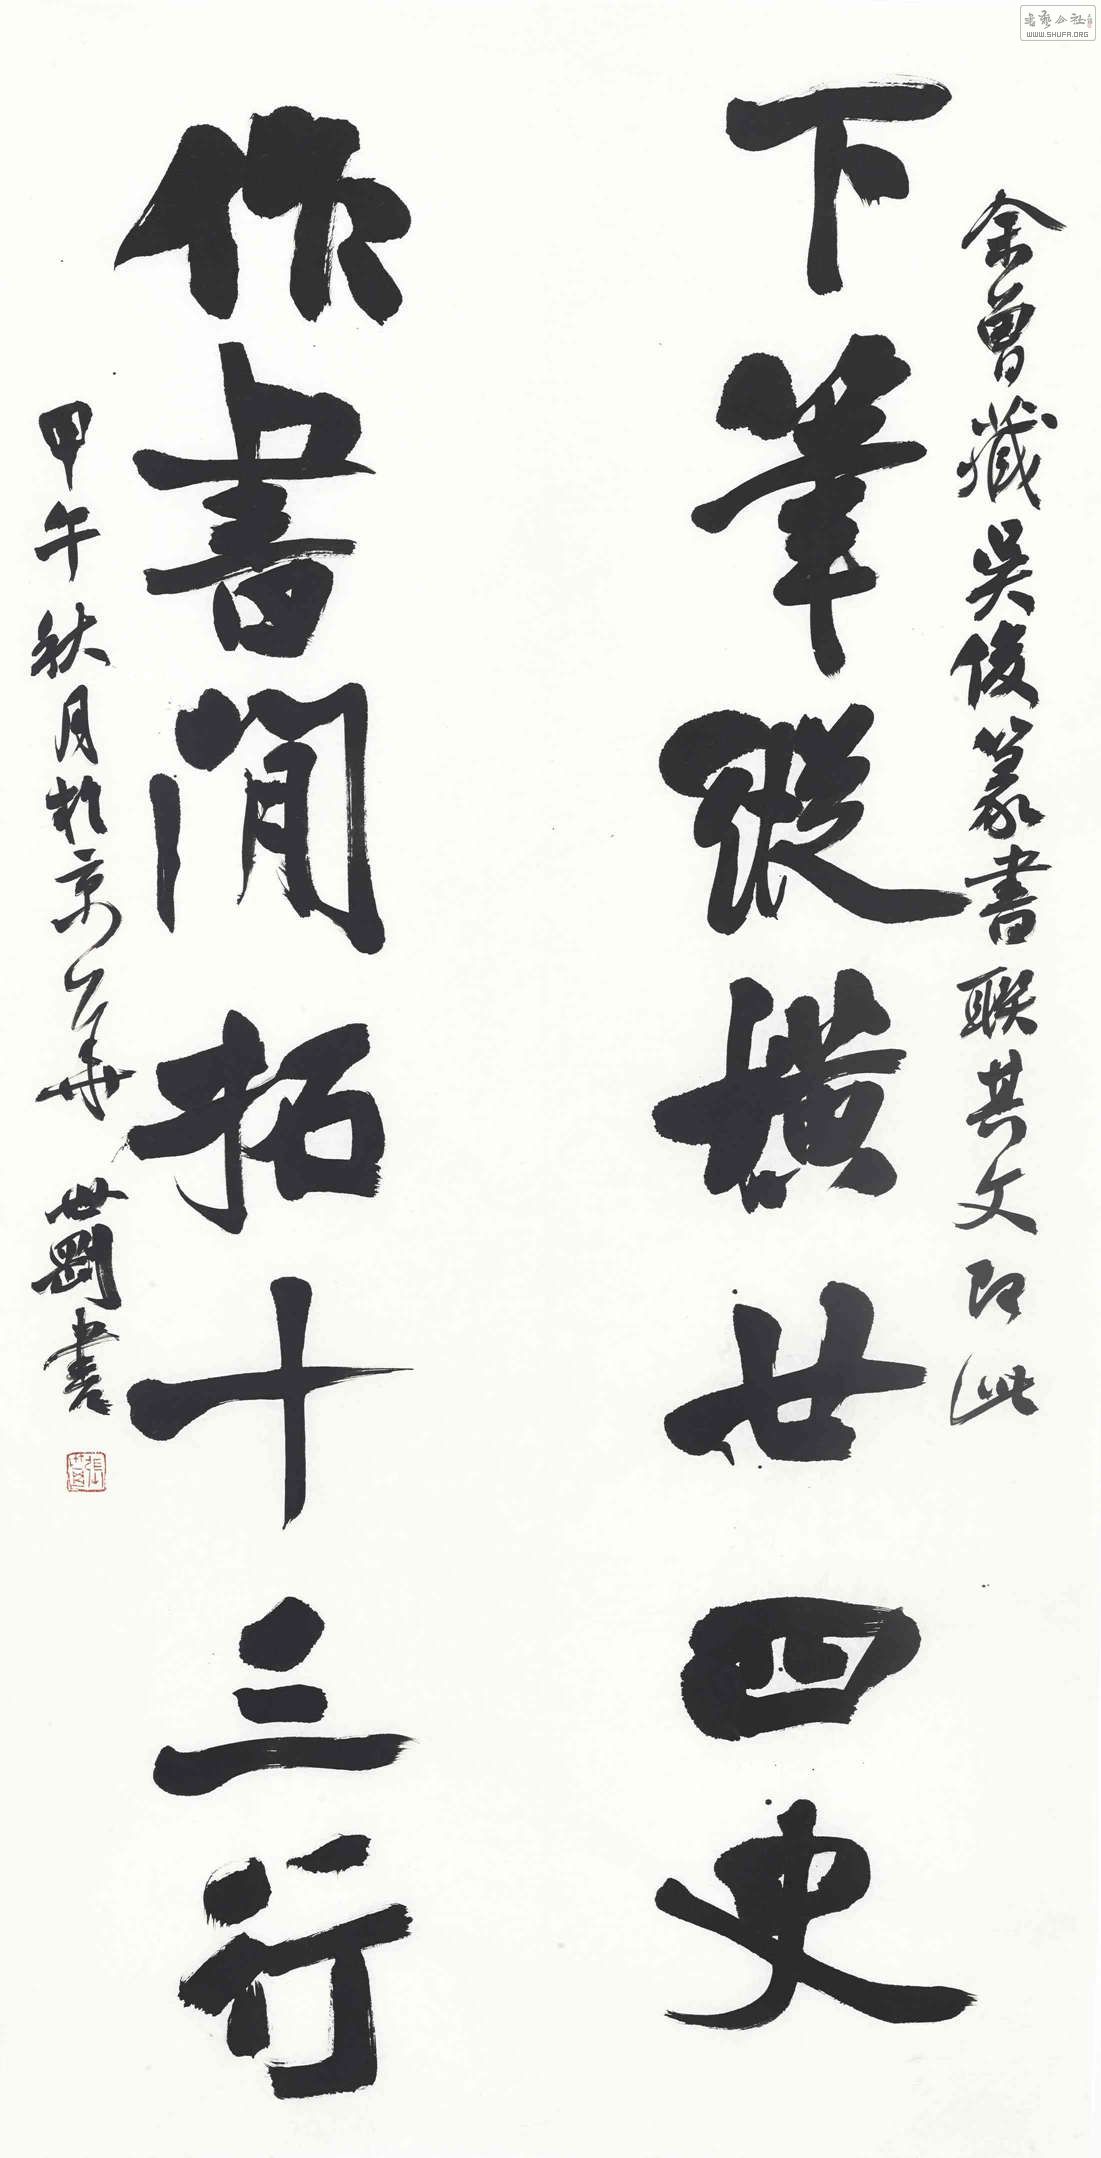 余曾藏吳俊篆書聯其文即此
下筆縱橫廿四史
作書閒拓十三行
甲午秋月於京華
世剛書
WWW.SHUFA.ORG